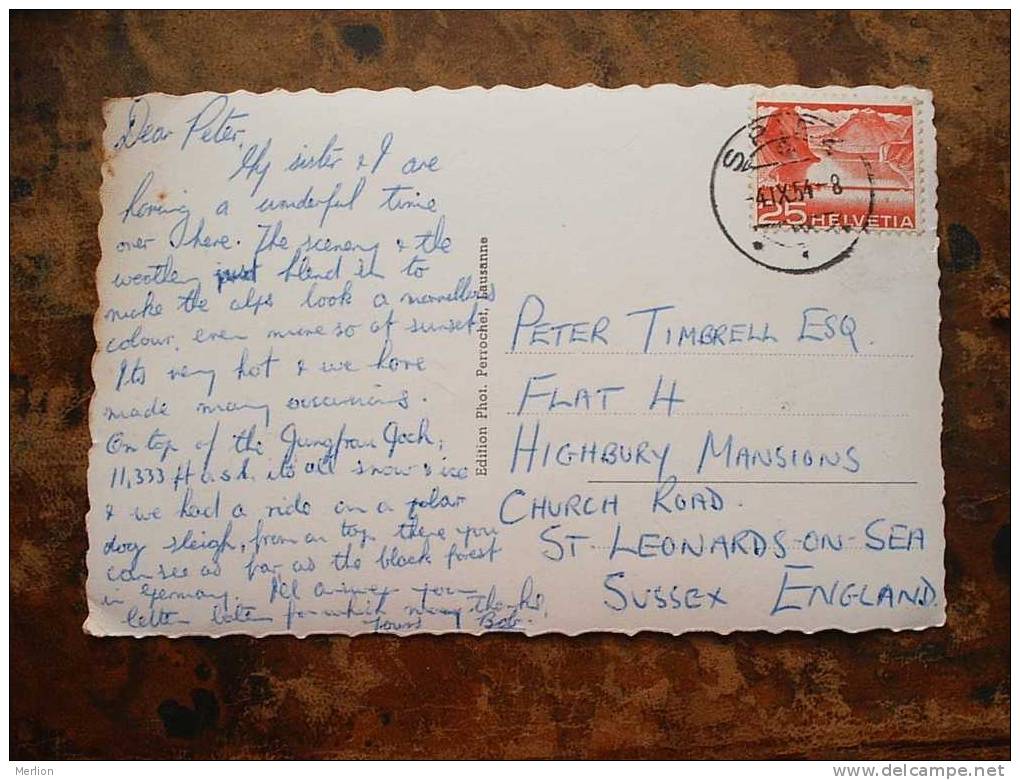 Dear Peter,
My sister & I are
having a wonderful time
over here. The scenery & the
weather just blend in to
make the alps look a marvellous
colour, even more so at sunset.
Its very hot & we have
made many excursions.
On top of the Jungfrau Joch,
11,333 ft a.s.l. its all snow & ice
& we had a ride on a polar
dog sleigh, from on top there you
can see as far as the black forest
in Germany. I'll answer your
letter later for which many thanks,
Yours Bob.
Edition Phot. Perrochet, Lausanne
SPIEZ
-4.IX.54-8
25 HELVETIA
PETER TIMBRELL ESQ.
FLAT 4
HIGHBURY MANSIONS
CHURCH ROAD.
ST LEONARDS-ON-SEA
SUSSEX ENGLAND.
Merlion
www.delcampe.net